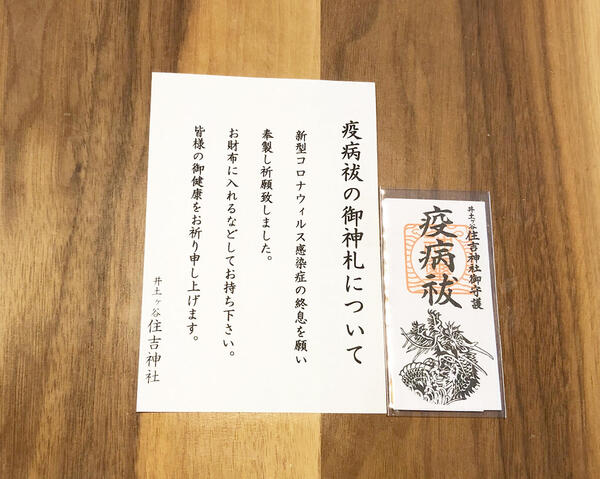 疫病祓の御神札について
新型コロナウィルス感染症の終息を願い
奉製し祈願致しました。
お財布に入れるなどしてお持ち下さい。
皆様の御健康をお祈り申し上げます。
井土ヶ谷 住吉神社
井土ヶ谷 住吉神社御守護
疫病祓